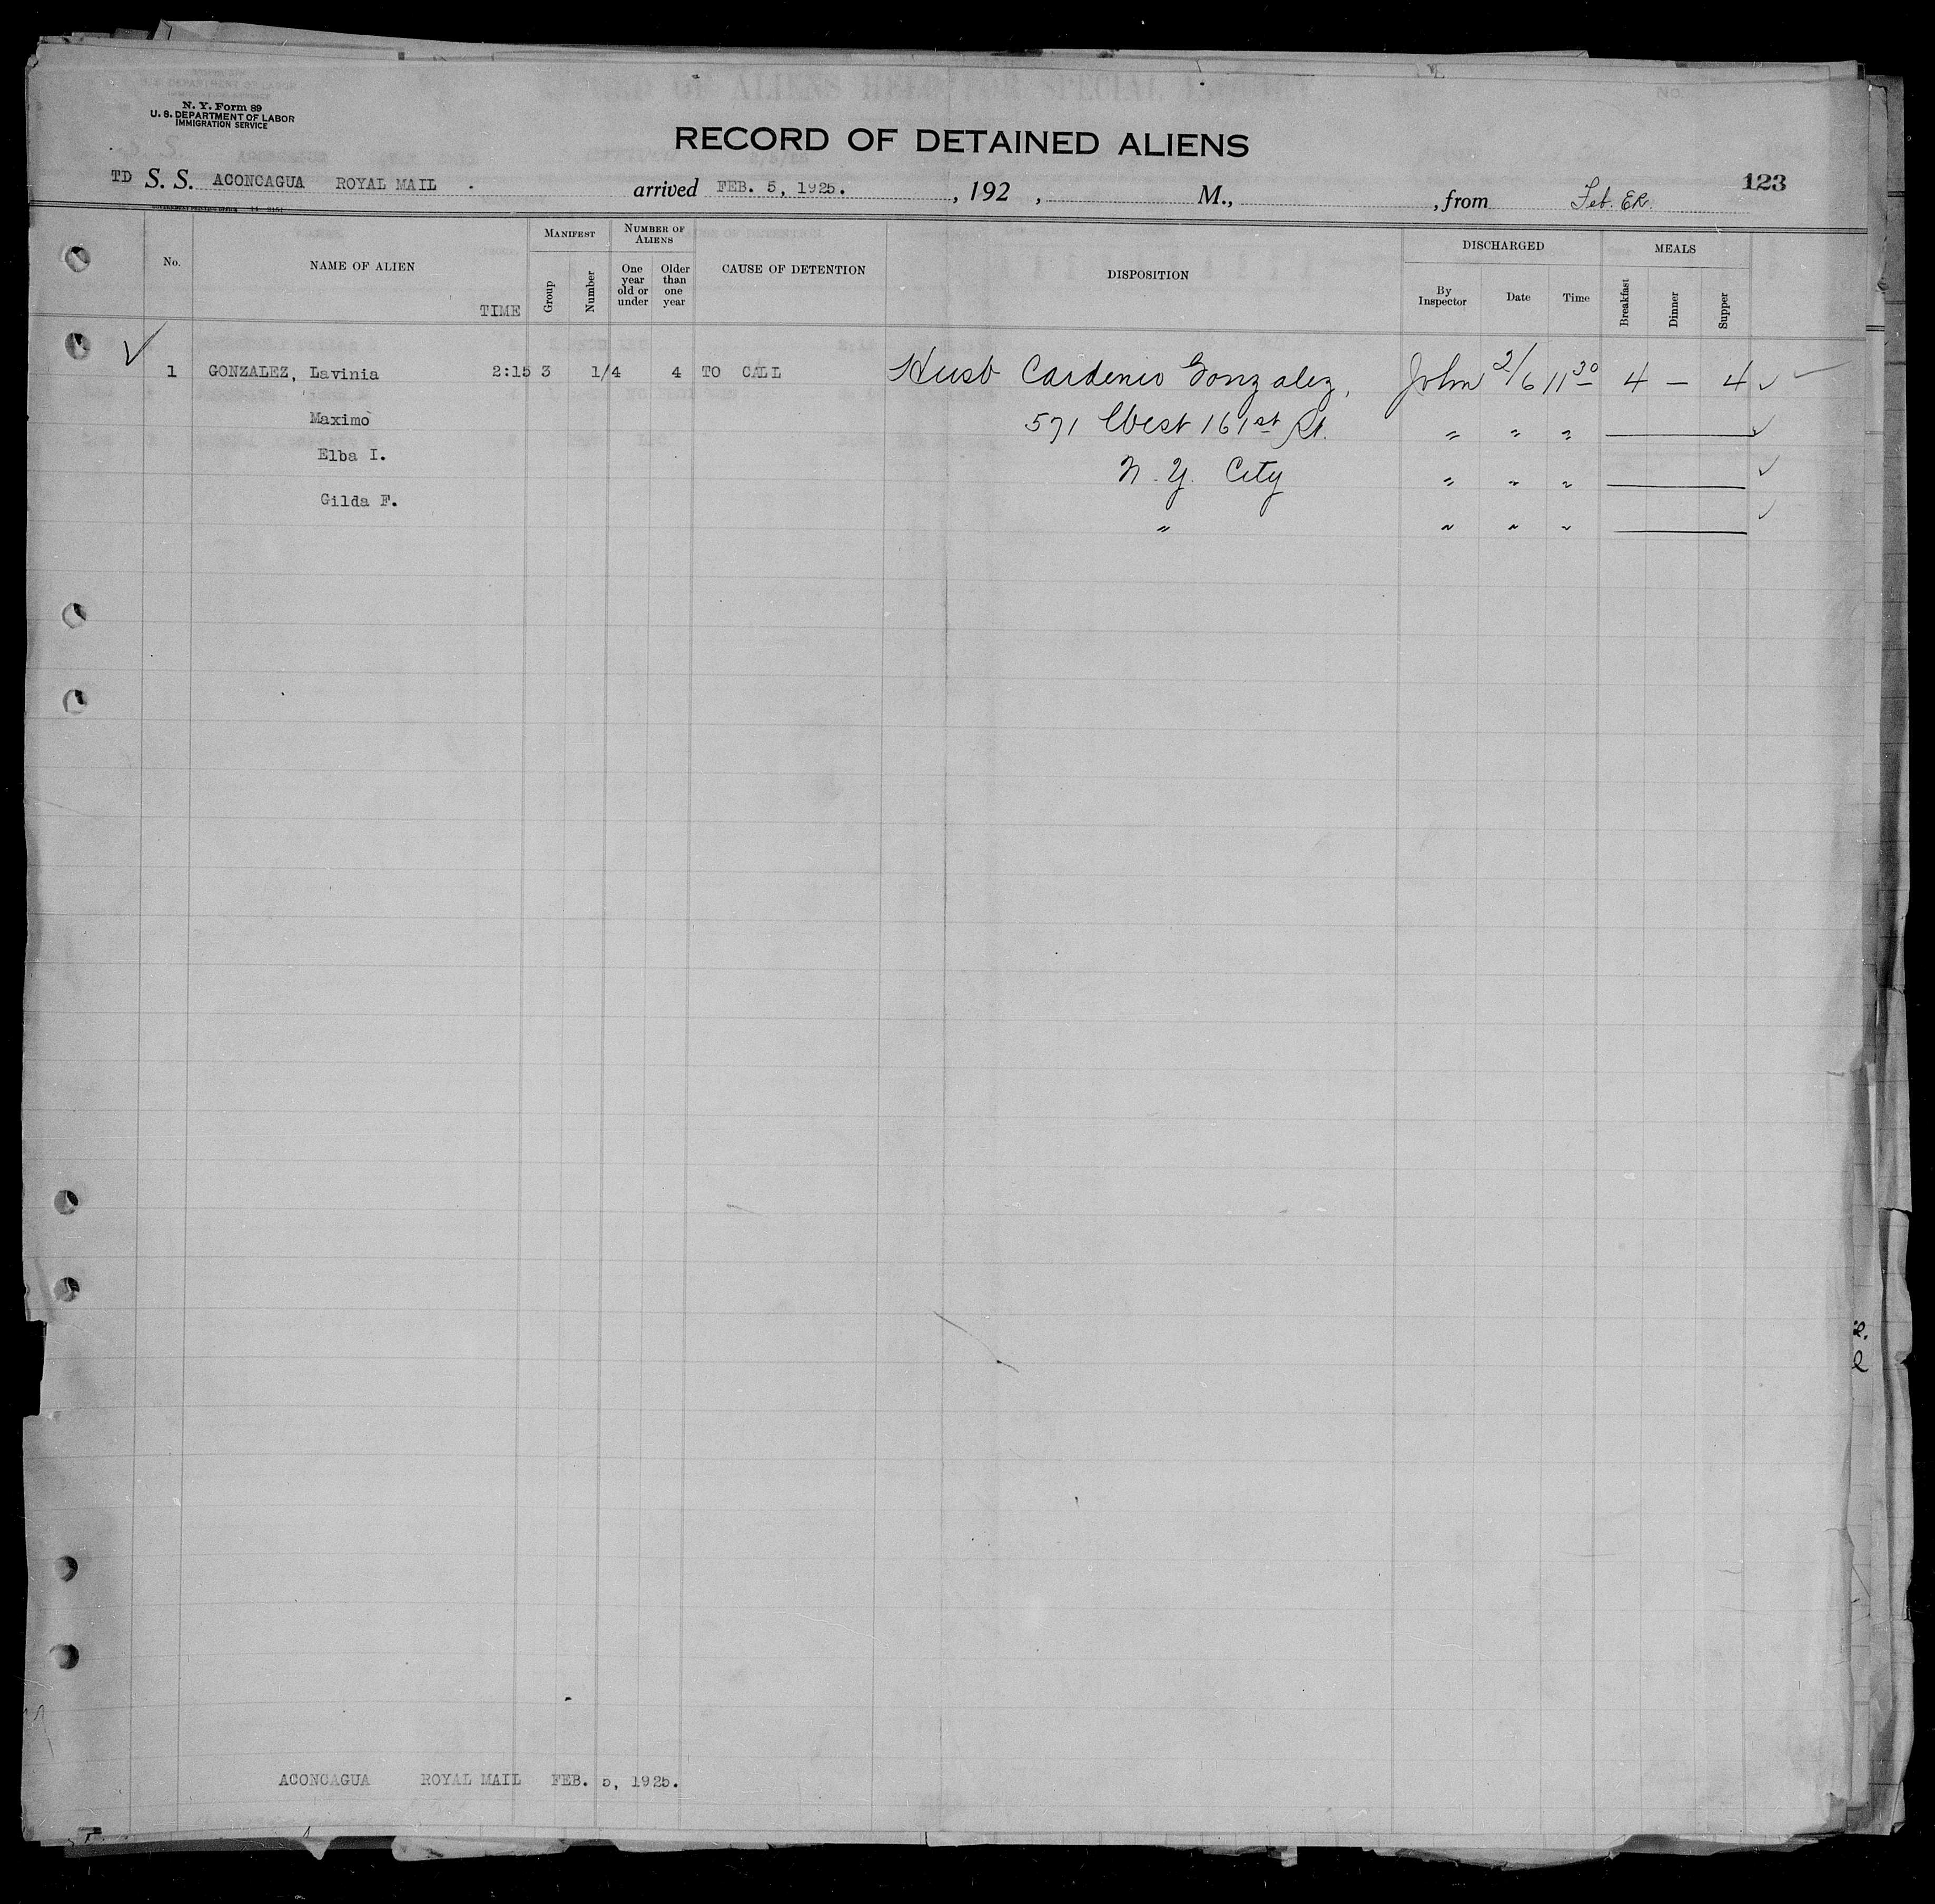 N. Y. Form 89
U. S. DEPARTMENT OF LABOR
IMMIGRATION SERVICE
RECORD OF DETAINED ALIENS
TD S. S. ACONCAGUA ROYAL MAIL . arrived FEB. 5, 1925. , 192 , M., , from 123
No. NAME OF ALIEN TIME MANIFEST Group Number NUMBER OF ALIENS One year old or under Older than one year CAUSE OF DETENTION DISPOSITION DISCHARGED By Inspector Date Time MEALS Breakfast Dinner Supper
1 GONZALEZ, Lavinia 2:15 3 1/4 4 TO CALL Husb Cardenio Gonzalez, John 2/6 11 30 4 — 4
Maximo 571 West 161st St. " " "
Elba I. N. Y. City " " "
Gilda F. " " " "
ACONCAGUA ROYAL MAIL FEB. 5, 1925.